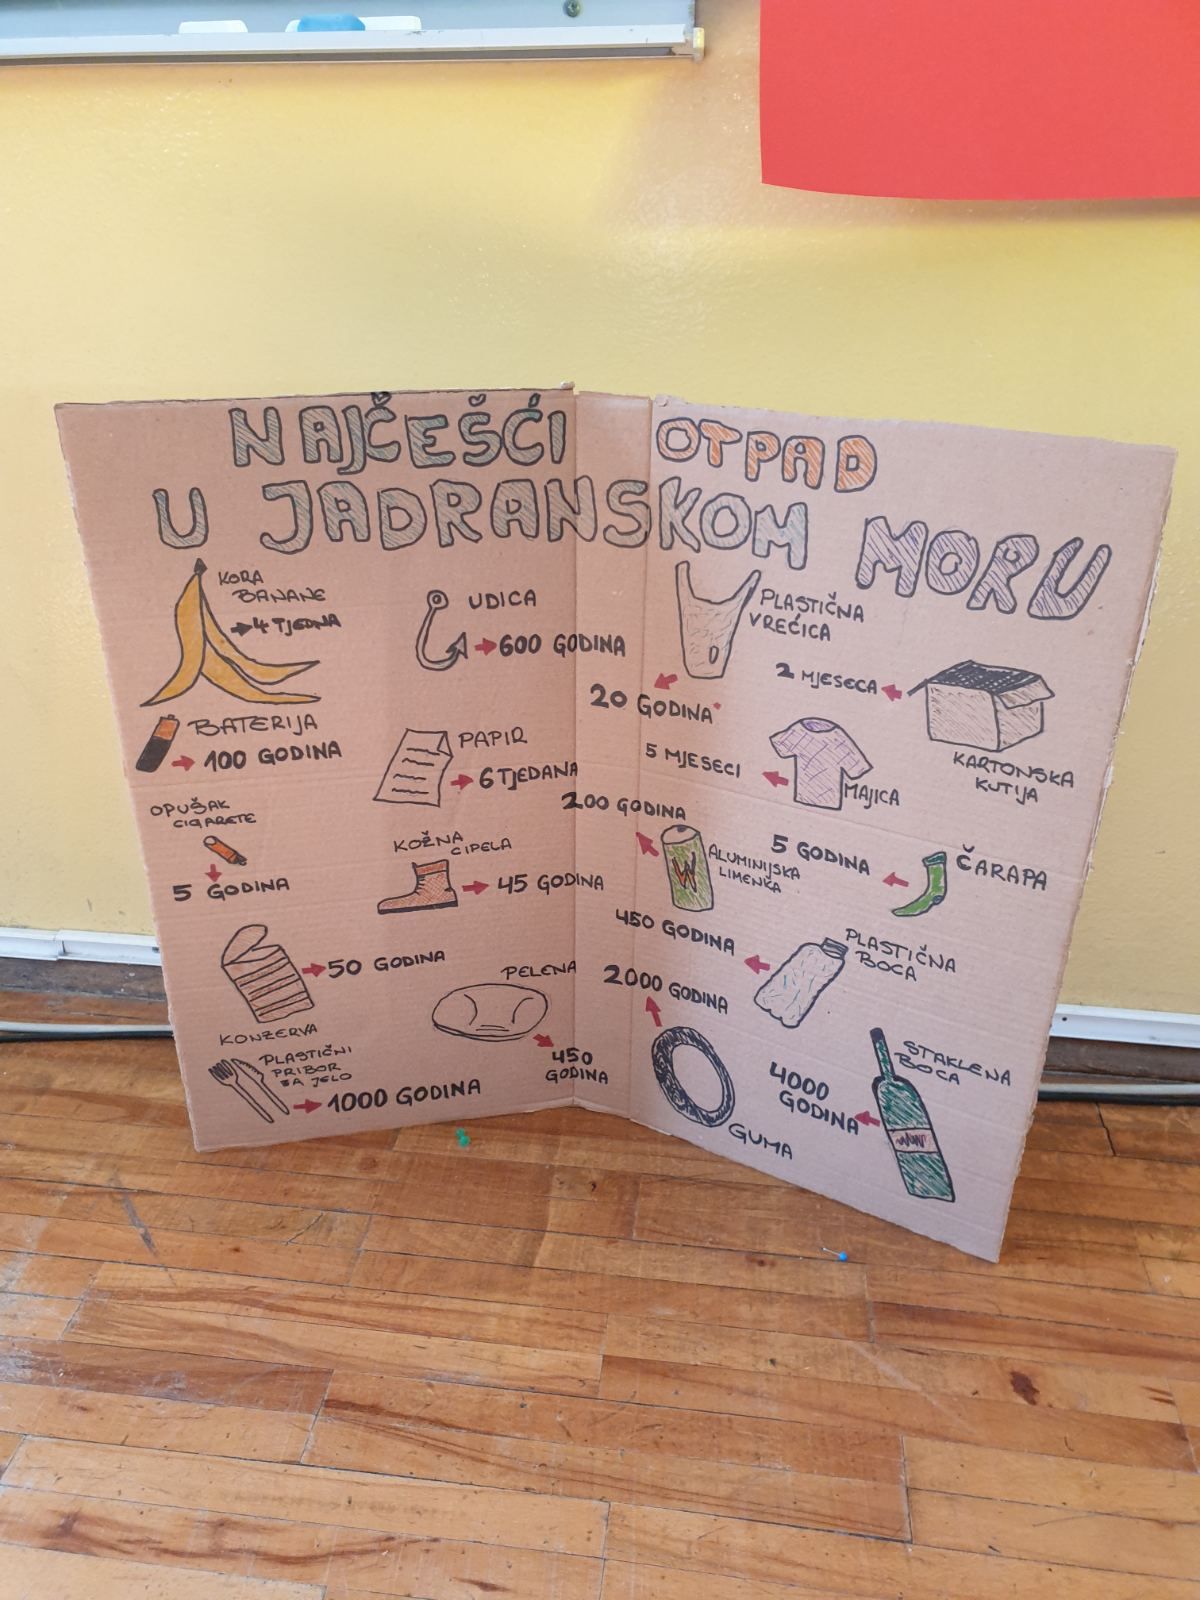 NAJČEŠĆI OTPAD
U JADRANSKOM MORU
KORA
BANANE
4 TJEDNA
UDICA
600 GODINA
BATERIJA
100 GODINA
PAPIR
6 TJEDANA
OPUŠAK
CIGARETE
5 GODINA
KOŽNA
CIPELA
45 GODINA
50 GODINA
KONZERVA
PELENA
450
GODINA
PLASTIČNI
PRIBOR
ZA JELO
1000 GODINA
PLASTIČNA
VREĆICA
20 GODINA
2 MJESECA
KARTONSKA
KUTIJA
5 MJESECI
MAJICA
200 GODINA
ALUMINIJSKA
LIMENKA
5 GODINA
ČARAPA
450 GODINA
PLASTIČNA
BOCA
2000 GODINA
GUMA
4000
GODINA
STAKLENA
BOCA